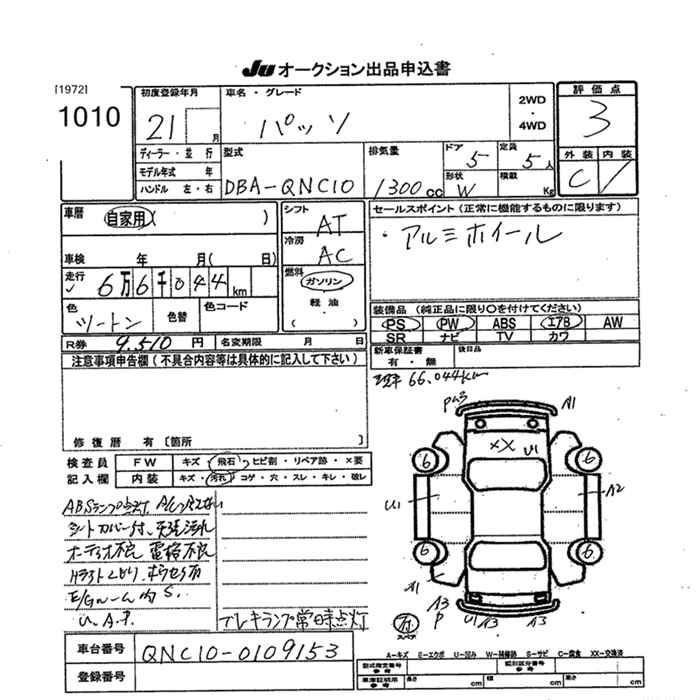 Ju オークション出品申込書
[1972]
1010
初度登録年月
21 月
車名・グレード
パッソ
2WD
・
4WD
評価点
3
ディーラー・並行
モデル年式 年
ハンドル 左・右
型式
DBA-QNC10
排気量
1300cc
ドア
5
定員
5人
形状
W
積載
Kg
外装 内装
C
車歴
自家用( )
シフト
AT
冷房
AC
車検 年 月( 日)
走行
6万6千044km
燃料
ガソリン
軽油
( )
色
ツートン
色替
色コード
R券 9,510円
名変期限 月 日
セールスポイント(正常に機能するものに限ります)
・アルミホイール
装備品(純正品に限り○を付けてください)
PS PW ABS エアB AW
SR ナビ TV カワ
新車保証書
有・無
後日品
66,044km
注意事項申告欄(不具合内容等は具体的に記入して下さい)
修復歴 有〔箇所 〕
検査員
記入欄
FW キズ・飛石・ヒビ割・リペア跡・×要
内装 キズ・汚れ・コゲ・穴・スレ・キレ・破レ
ABSランプ点灯
シートカバー付、天張汚れ
オーディオ不良 電格不良
E/Gルーム内S.
U.A.P
ブレーキランプ常時点灯
A1
XX
U1
6
6
U1
A2
6
6
A1
A3
P
U1
A3
A3
スペア
車台番号
QNC10-0109153
登録番号
A-キズ E-エクボ U-凹み W-補修跡 S-サビ C-腐食 XX-交換済
型式指定番号
参考
類別区分番号
参考
車庫証明用
参考
長さ cm
幅 cm
高さ cm